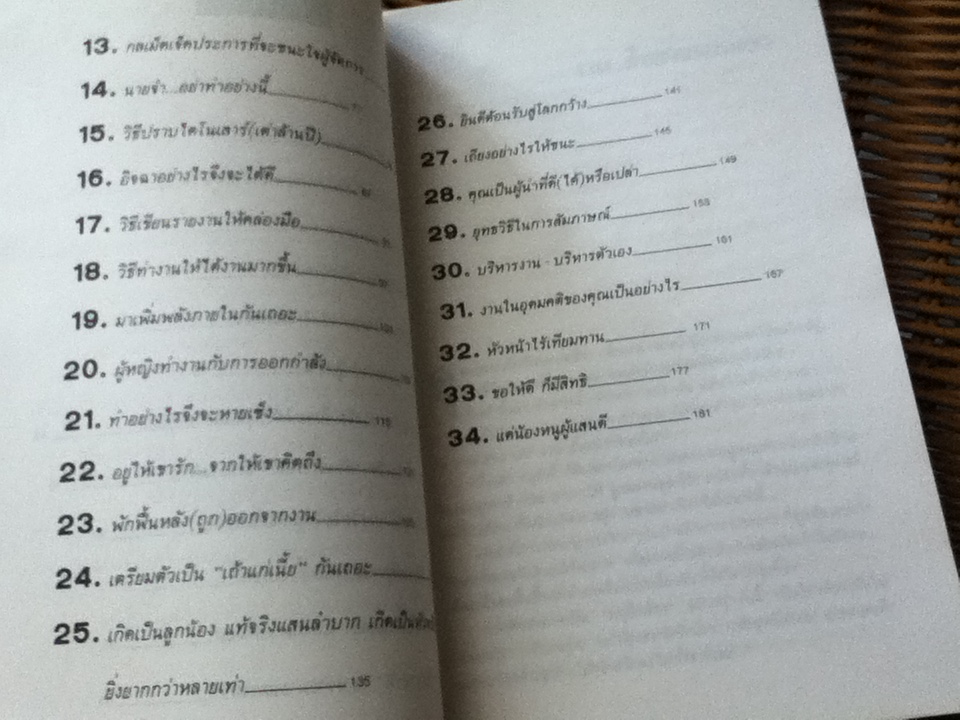 13. กลเม็ดเจ็ดประการที่จะชนะใจผู้จัดการ
14. นายจ๋า...อย่าทำอย่างนี้
15. วิธีปราบไดโนเสาร์(เต่าล้านปี)
16. อิจฉาอย่างไรจึงจะได้ดี
17. วิธีเขียนรายงานให้คล่องมือ
18. วิธีทำงานให้ได้งานมากขึ้น
19. มาเพิ่มพลังภายในกันเถอะ
20. ผู้หญิงทำงานกับการออกกำลัง
21. ทำอย่างไรจึงจะหายเซ็ง 115
22. อยู่ให้เขารัก...จากให้เขาคิดถึง
23. พักฟื้นหลัง(ถูก)ออกจากงาน
24. เตรียมตัวเป็น "เถ้าแก่เนี้ย" กันเถอะ
25. เกิดเป็นลูกน้อง แท้จริงแสนลำบาก เกิดเป็น
ยิ่งยากกว่าหลายเท่า 135
26. ยินดีต้อนรับสู่โลกกว้าง 141
27. เถียงอย่างไรให้ชนะ 145
28. คุณเป็นผู้นำที่ดี(ได้)หรือเปล่า 149
29. ยุทธวิธีในการสัมภาษณ์ 153
30. บริหารงาน - บริหารตัวเอง 161
31. งานในอุดมคติของคุณเป็นอย่างไร 167
32. หัวหน้าไร้เทียมทาน 171
33. ขอให้ดี ก็มีสิทธิ 177
34. แด่น้องหนูผู้แสนดี 181